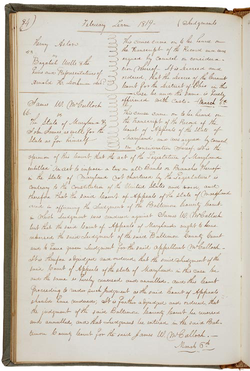 86)
February Term 1819.
(Judgments
This cause came on to be heard on
the Transcript of the Record and was
argued by Counsel on considera-
tion whereof. It is ordered and
ordered that the decree of the Circuit
Court for the District of Ohio in this
case be and the same is hereby
affirmed with costs. March 5th
James W. McCulloch
vs
The State of Maryland &
John James as well for the
State as for himself
This cause came on to be heard on
the Transcript of the Record of the
Court of Appeals of the State of
Maryland and was argued by counsel
on consideration whereof It is the
opinion of this Court that the act of the Legislature of Maryland
entitled "an act to impose a tax on all Banks or Branches thereof
in the State of Maryland not chartered by the Legislature" is
contrary to the Constitution of the United States and void; and
therefore that the said Court of Appeals of the State of Maryland
erred in affirming the Judgment of the Baltimore County Court
in which Judgment was rendered against James W. McCulloch
but that the said Court of Appeals of Maryland ought to have
reversed the said Judgment of the said Baltimore County Court
and to have given Judgment for the said appellant McCulloch.
It is therefore adjudged and ordered that the said Judgment of the
said Court of Appeals of the State of Maryland in this case be
and the same is hereby reversed and annulled, and this Court
proceeding to render such Judgment as the said Court of Appeals
should have rendered, It is further adjudged and ordered that
the Judgment of the said Baltimore County Court be reversed
and annulled, and that Judgment be entered in the said Balti-
more County Court for the said James W. McCulloch.
March 6th